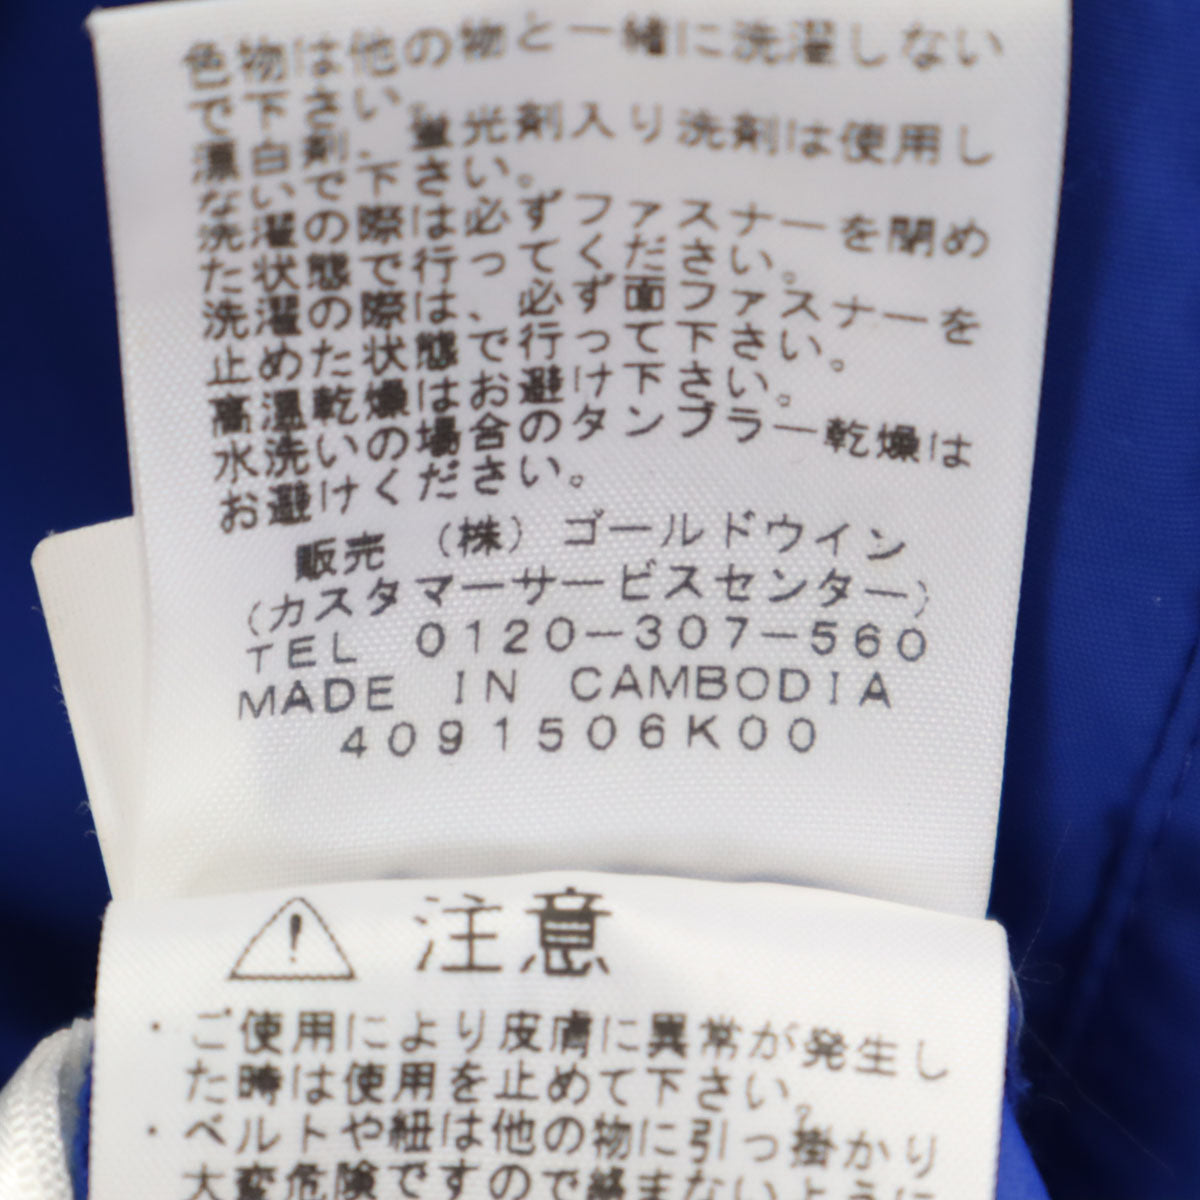 色物は他の物と一緒に洗濯しない
で下さい。
漂白剤、蛍光剤入り洗剤は使用し
ないで下さい。
洗濯の際は必ずファスナーを閉め
た状態で行ってください。
洗濯の際は、必ず面ファスナーを
止めた状態で行って下さい。
高温乾燥はお避け下さい。
水洗いの場合のタンブラー乾燥は
お避けください。
販売 (株) ゴールドウイン
(カスタマーサービスセンター)
TEL 0120-307-560
MADE IN CAMBODIA
4091506K00
注意
・ご使用により皮膚に異常が発生し
た時は使用を止めて下さい。
・ベルトや紐は他の物に引っ掛かり
大変危険ですので絡まないように